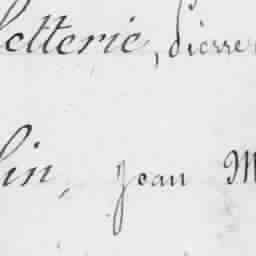 letterie, pierre
lin, Jean M